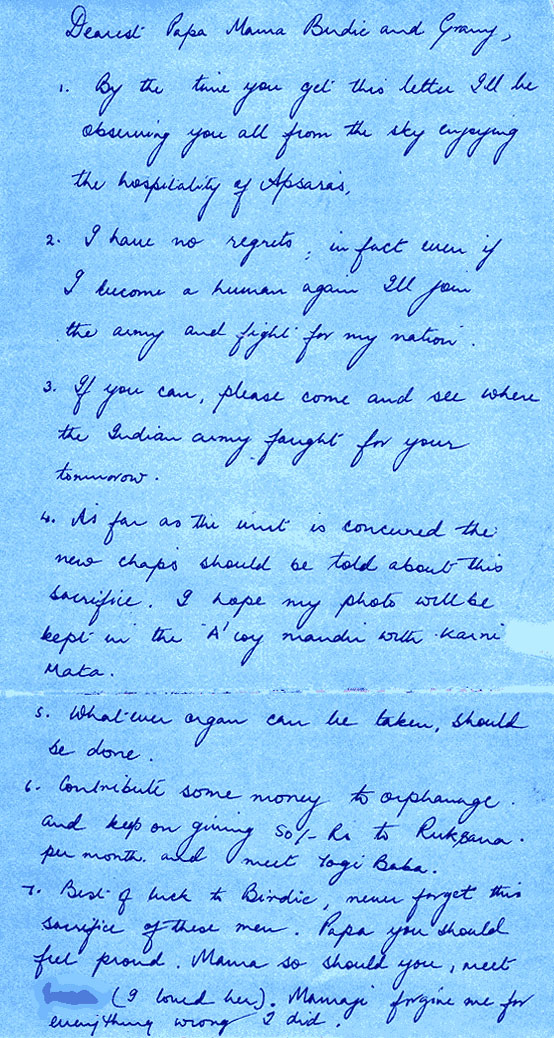 Dearest Papa Mama Birdie and Grany,
1. By the time you get this letter I'll be
observing you all from the sky enjoying
the hospitality of Apsaras,
2. I have no regrets, in fact even if
I become a human again I'll join
the army and fight for my nation.
3. If you can, please come and see where
the Indian army faught for your
tommorow.
4. As far as the unit is concured the
new chaps should be told about this
sacrifice. I hope my photo will be
kept in the 'A' coy mandir with Karni
Mata.
5. Whatever organ can be taken, should
be done.
6. Contribute some money to orphanage.
and keep on giving 50/- Rs to Rukhsana.
per month. and meet Yogi Baba.
7. Best of luck to Birdie, never forget this
sacrifice of these men. Papa you should
feel proud. Mama so should you, meet
(I loved her). Mamaji forgive me for
everything wrong I did.